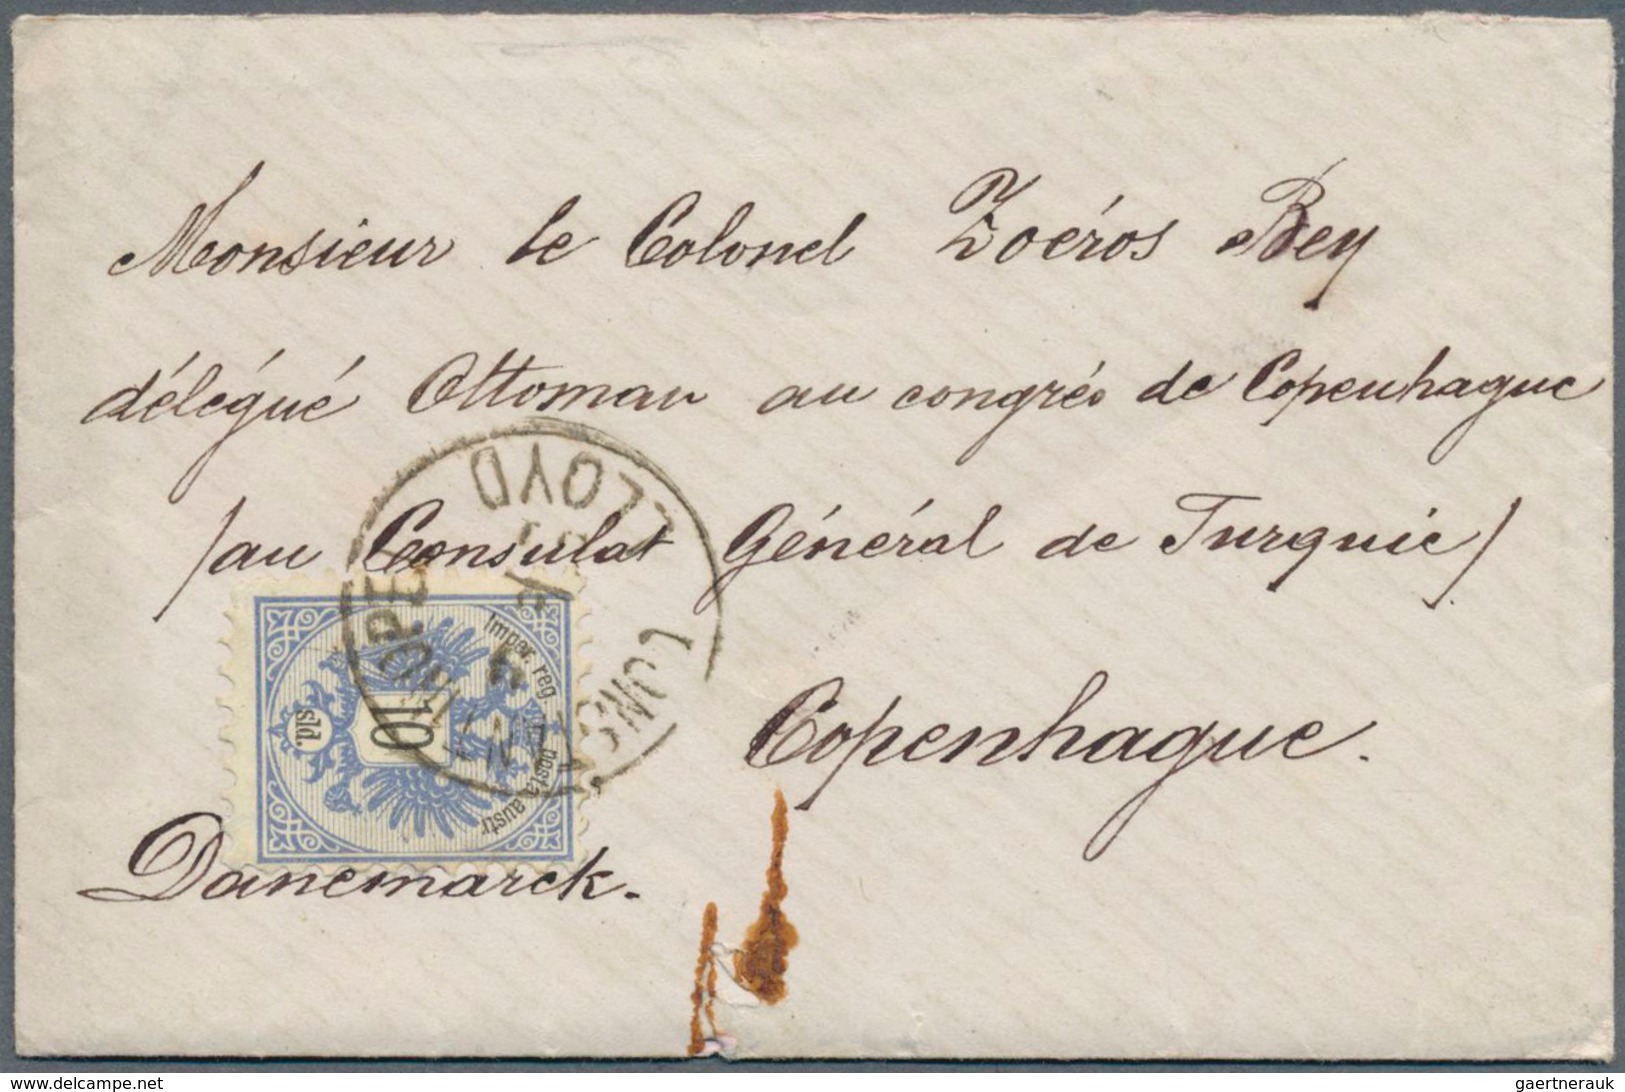 Monsieur le Colonel Zoéros Bey
délégué Ottoman au congrés de Copenhague
/au Consulat Général de Turquie/
Copenhague.
Danemarck.
LLOYD
Imper. reg. posta austr
10
sld.
gaertnerauk